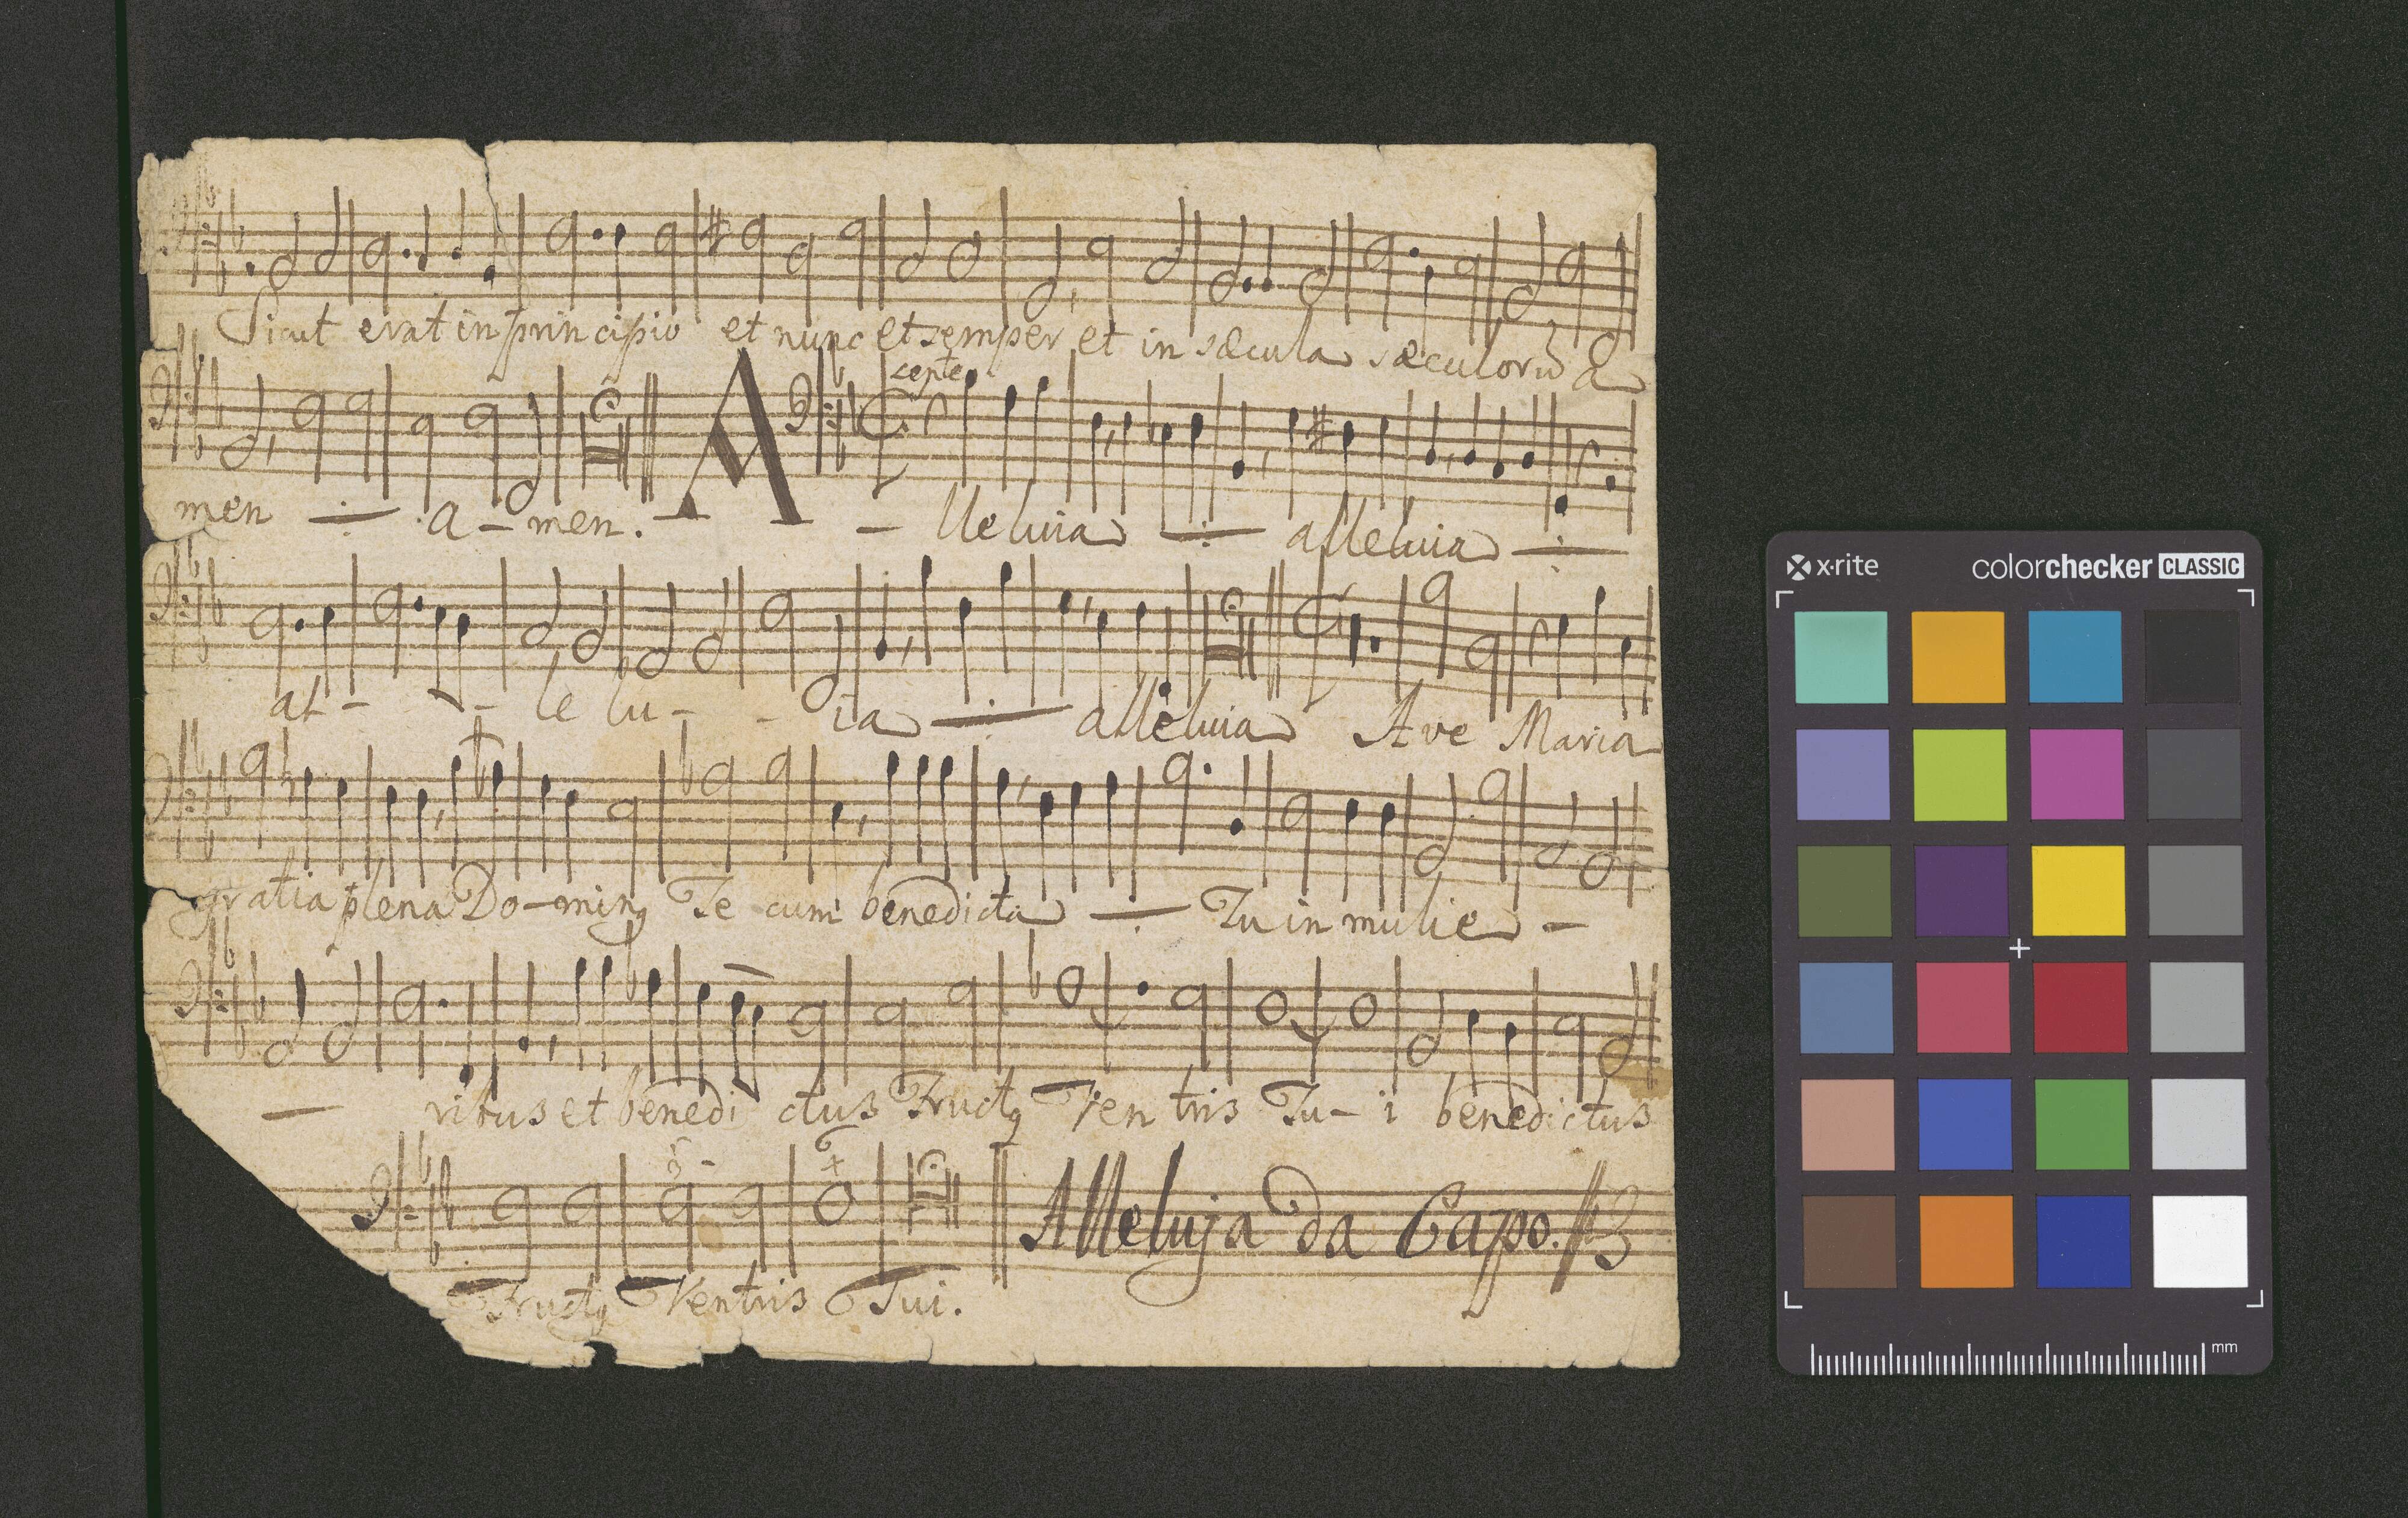 Sicut erat in principio et nunc et semper et in sæcula sæculorū A
septe
men -:- a - men. A - lleluia -:- alleluia -:-
al - - le lu - - ia -:- alleluia Ave Maria
gratia plena Do - minꝯ Te cum benedicta -:- Tu in mulie -
- ribus et benedi ctus Fructꝯ Ven tris Tu - i benedictus
Alleluja da Capo.
Fructꝯ Ventris Tui.
x·rite colorchecker CLASSIC
mm